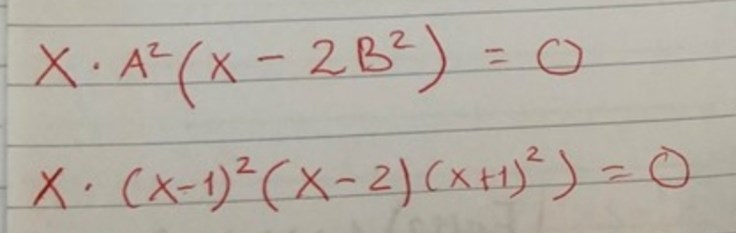 X · A²(x - 2B²) = 0
X · (x-1)²(x-2)(x+1)²) = 0